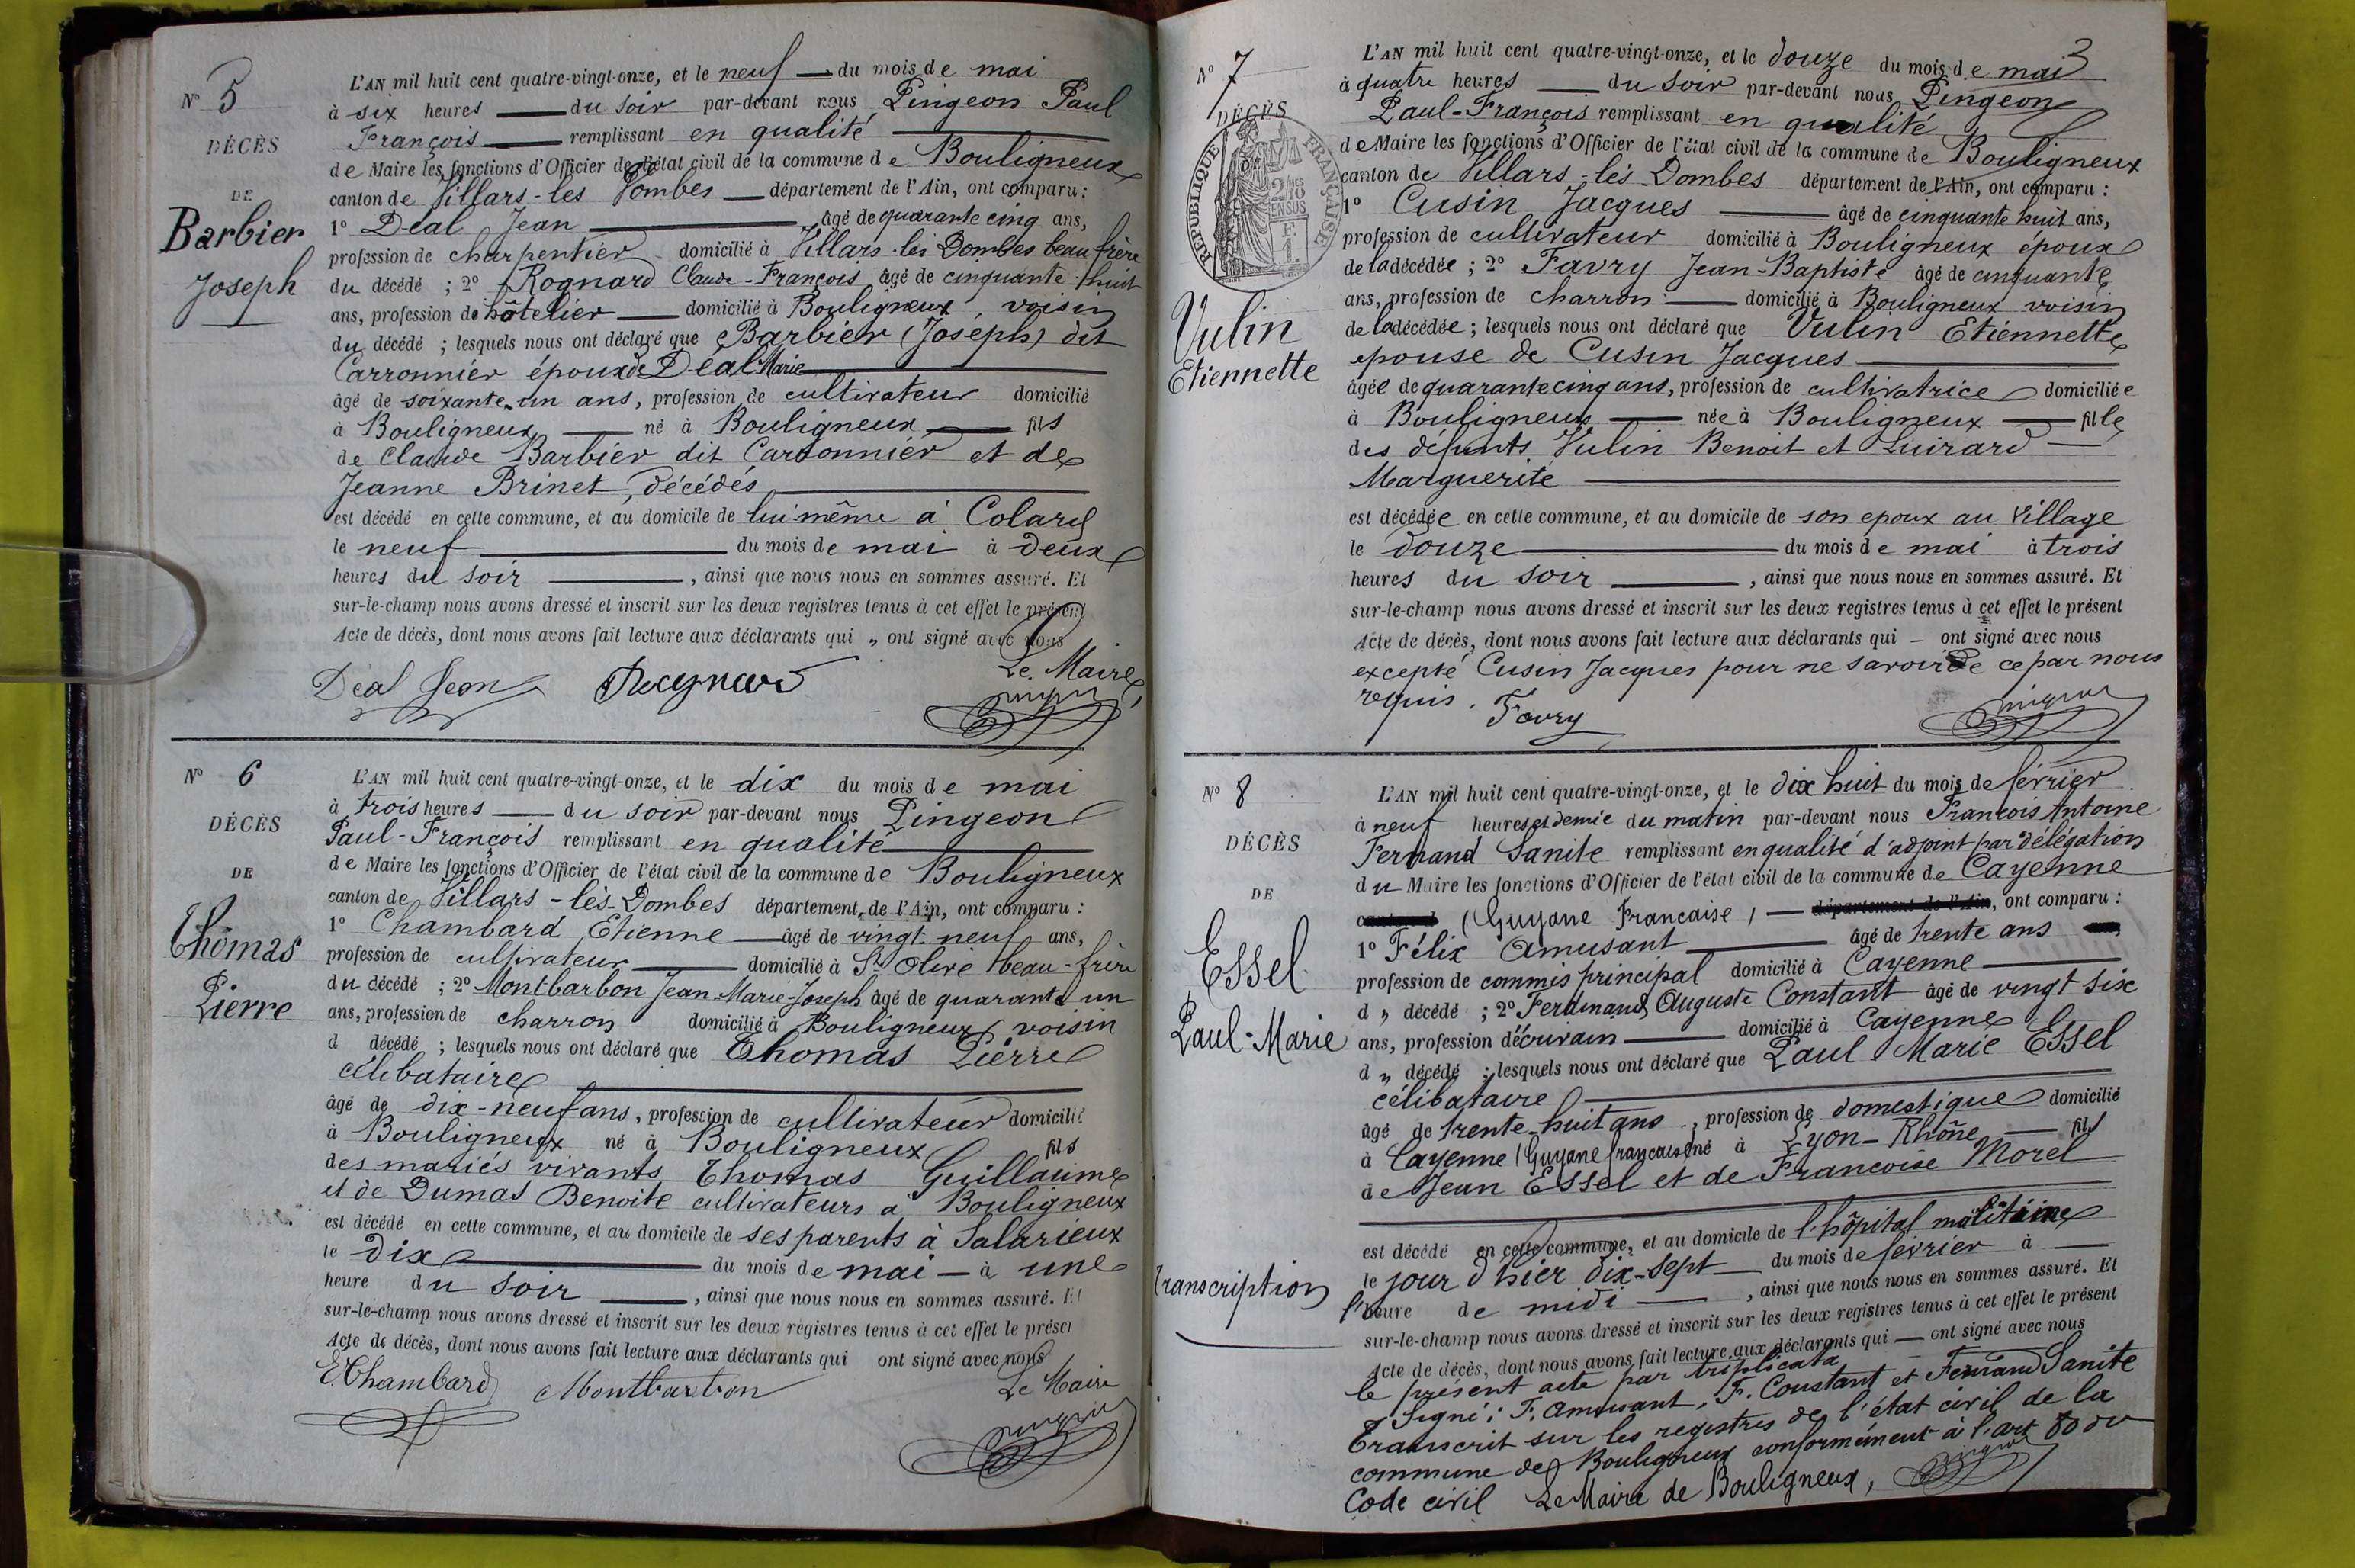 N° 5
DÉCÈS
DE
Barbier
Joseph
L'AN mil huit cent quatre-vingt-onze, et le neuf du mois de mai
à six heures du soir par-devant nous Pingeon Paul
François remplissant en qualité
de Maire les fonctions d'Officier de l'état civil de la commune de Bouligneux
canton de Villars-les Dombes département de l'Ain, ont comparu :
1° Déal Jean âgé de quarante cinq ans,
profession de charpentier domicilié à Villars-les Dombes beau frère
du décédé ; 2° Rognard Claude-François âgé de cinquante-huit
ans, profession de hôtelier domicilié à Bouligneux, voisin
du décédé ; lesquels nous ont déclaré que Barbier (Joseph) dit
Carronnier époux de Déal Marie
âgé de soixante-un ans, profession de cultivateur domicilié
à Bouligneux né à Bouligneux fils
de Claude Barbier dit Carronnier et de
Jeanne Brinet, décédés
est décédé en cette commune, et au domicile de lui-même à Colard
le neuf du mois de mai à deux
heures du soir, ainsi que nous nous en sommes assuré. Et
sur-le-champ nous avons dressé et inscrit sur les deux registres tenus à cet effet le présent
Acte de décès, dont nous avons fait lecture aux déclarants qui „ ont signé avec nous
Le Maire,
Déal Jean Rognard
N° 6
DÉCÈS
DE
Thomas
Pierre
L'AN mil huit cent quatre-vingt-onze, et le dix du mois de mai
à trois heures du soir par-devant nous Pingeon
Paul-François remplissant en qualité
de Maire les fonctions d'Officier de l'état civil de la commune de Bouligneux
canton de Villars-lès-Dombes département de l'Ain, ont comparu :
1° Chambard Etienne âgé de vingt-neuf ans,
profession de cultivateur domicilié à St Olive beau-frère
du décédé ; 2° Montbarbon Jean-Marie-Joseph âgé de quarante un
ans, profession de charron domicilié à Bouligneux voisin
d décédé ; lesquels nous ont déclaré que Thomas Pierre
célibataire
âgé de dix-neuf ans, profession de cultivateur domicilié
à Bouligneux né à Bouligneux fils
des mariés vivants Thomas Guillaume
et de Dumas Benoite cultivateurs à Bouligneux
est décédé en cette commune, et au domicile de ses parents à Salarieux
le dix du mois de mai à une
heure du soir, ainsi que nous nous en sommes assuré. Et
sur-le-champ nous avons dressé et inscrit sur les deux registres tenus à cet effet le présen
Acte de décès, dont nous avons fait lecture aux déclarants qui ont signé avec nous
Le Maire
E. Chambard Montbarbon
3
N° 7
DÉCÈS
RÉPUBLIQUE FRANÇAISE
Vulin
Etiennette
L'AN mil huit cent quatre-vingt-onze, et le douze du mois de mai
à quatre heures du soir par-devant nous Pingeon
Paul-François remplissant en qualité
de Maire les fonctions d'Officier de l'état civil de la commune de Bouligneux
canton de Villars-lès-Dombes département de l'Ain, ont comparu :
1° Cusin Jacques âgé de cinquante huit ans,
profession de cultivateur domicilié à Bouligneux époux
de la décédée ; 2° Favry Jean-Baptiste âgé de cinquante
ans, profession de charron domicilié à Bouligneux voisin
de la décédée ; lesquels nous ont déclaré que Vulin Etiennette
epouse de Cusin Jacques
âgée de quarante cinq ans, profession de cultivatrice domiciliée
à Bouligneux née à Bouligneux fille
des défunts Vulin Benoit et Luirard
Marguerite
est décédée en cette commune, et au domicile de son epoux au Village
le douze du mois de mai à trois
heures du soir, ainsi que nous nous en sommes assuré. Et
sur-le-champ nous avons dressé et inscrit sur les deux registres tenus à cet effet le présent
Acte de décès, dont nous avons fait lecture aux déclarants qui — ont signé avec nous
excepté Cusin Jacques pour ne savoir de ce par nous
requis. Favry
N° 8
DÉCÈS
DE
Essel
Paul-Marie
transcription
L'AN mil huit cent quatre-vingt-onze, et le dix huit du mois de février
à neuf heures et demie du matin par-devant nous François Antoine
Fernand Sanite remplissant en qualité d'adjoint par délégation
du Maire les fonctions d'Officier de l'état civil de la commune de Cayenne
(Guyane Francaise) — département de l'Ain, ont comparu :
1° Félix Amusant âgé de trente ans
profession de commis principal domicilié à Cayenne
d „ décédé ; 2° Ferdinand Auguste Constant âgé de vingt six
ans, profession d'écrivain domicilié à Cayenne
d „ décédé ; lesquels nous ont déclaré que Paul Marie Essel
célibataire
âgé de trente-huit ans, profession de domestique domicilié
à Cayenne (Guyane française) né à Lyon-Rhône fils
de Jean Essel et de Francoise Morel
est décédé en cette commune, et au domicile de l'hôpital militaire
le jour d'hier dix-sept du mois de février à
l'heure de midi, ainsi que nous nous en sommes assuré. Et
sur-le-champ nous avons dressé et inscrit sur les deux registres tenus à cet effet le présent
Acte de décès, dont nous avons fait lecture aux déclarants qui — ont signé avec nous
le présent acte par triplicata
Signé : F. Amusant, F. Constant et Fernand Sanite
Transcrit sur les registres de l'état civil de la
commune de Bouligneux conformément à l'art 80 du
Code civil Le Maire de Bouligneux,